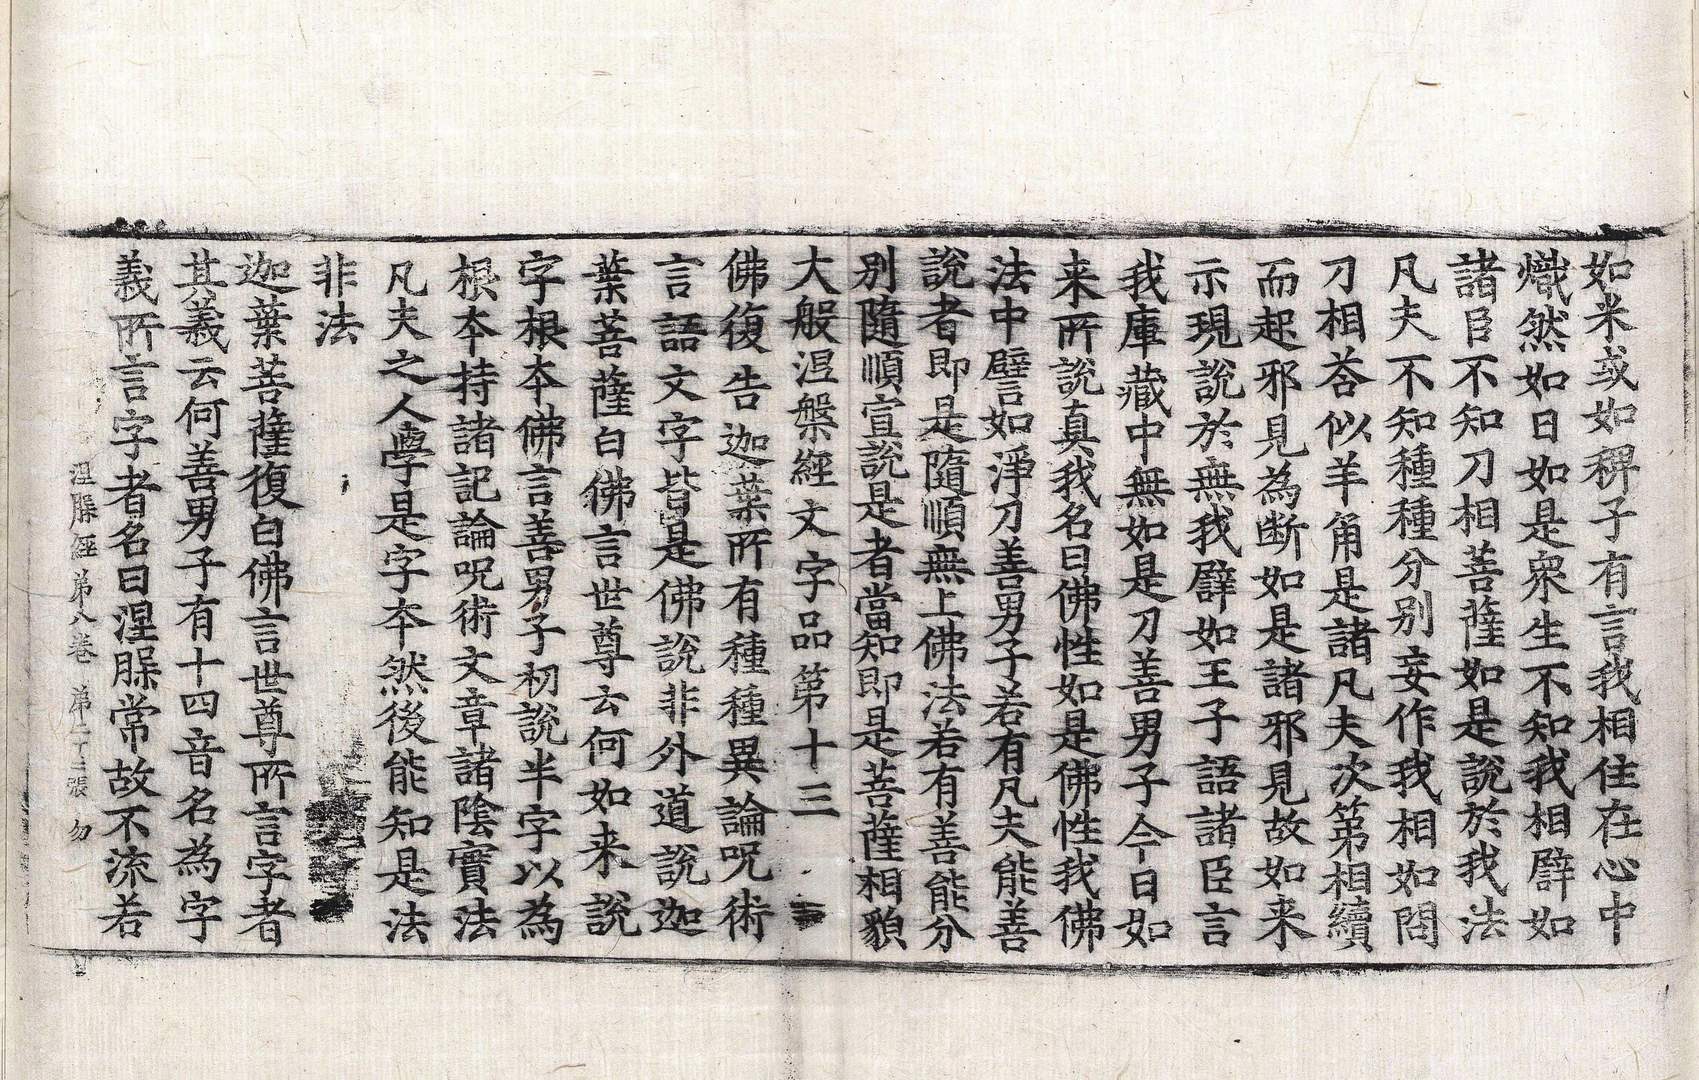 如米或如稗子有言我相住在心中
熾然如日如是衆生不知我相譬如
諸臣不知刀相菩薩如是說於我法
凡夫不知種種分別妄作我相如問
刀相荅似羊角是諸凡夫次第相續
而起邪見為断如是諸邪見故如来
示現說於無我譬如王子語諸臣言
我庫藏中無如是刀善男子今日如
来所說真我名曰佛性如是佛性我佛
法中譬如淨刀善男子若有凡夫能善
說者即是隨順無上佛法若有善能分
別隨順宣說是者當知即是菩薩相貌
大般涅槃經文字品第十三
佛復告迦葉所有種種異論呪術
言語文字皆是佛說非外道說迦
葉菩薩白佛言世尊云何如来說
字根本佛言善男子初說半字以為
根本持諸記論呪術文章諸陰實法
凡夫之人學是字本然後能知是法
非法
迦葉菩薩復白佛言世尊所言字者
其義云何善男子有十四音名為字
義所言字者名曰涅槃常故不流若
涅槃経 第八卷 第二丁二張 勿